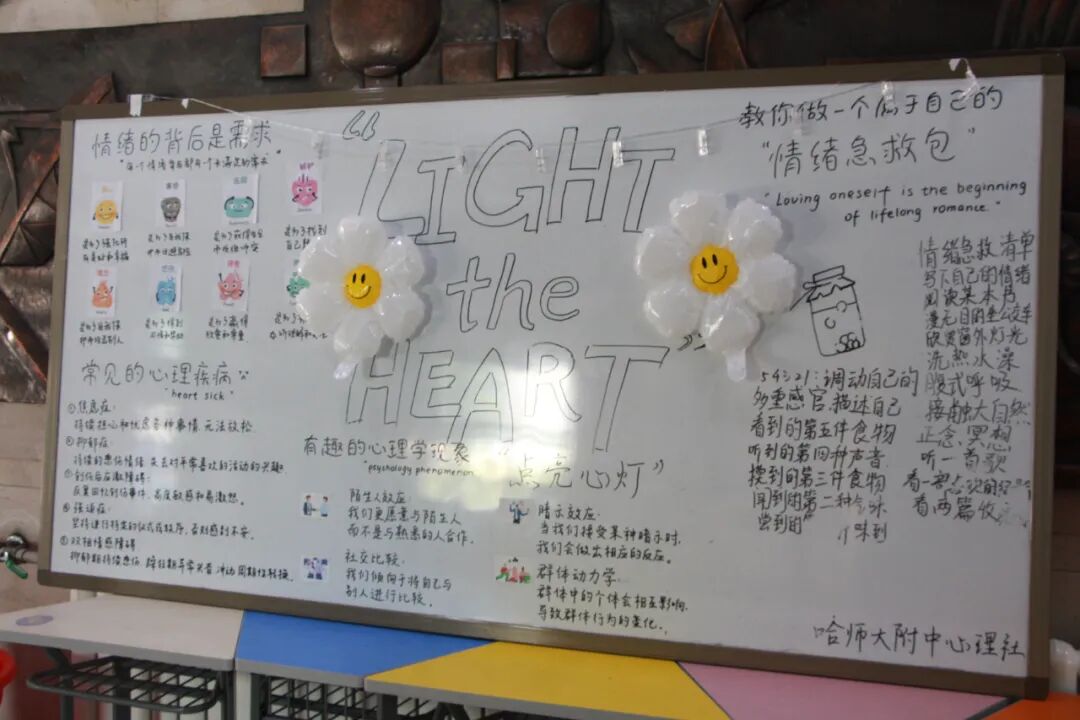 情绪的背后是需求
"LIGHT
the
HEART"
"点亮心灯"
常见的心理疾病
"heart sick"
①焦虑症:
持续担心和忧虑各种事情,无法放松.
②抑郁症:
持续的悲伤情绪,失去对平常喜欢的活动的兴趣
创伤后应激障碍:
反复回忆创伤事件,高度敏感和易激怒.
强迫症:
坚持进行特定的仪式或秩序,否则感到不安.
双相情感障碍
有趣的心理学现象
"psychology phenomenon
陌生人效应:
我们更愿意与陌生人
而不是与熟悉的人合作.
社交比较.
我们倾向于将自己与
别人进行比较.
暗示效应:
当我们接受某种暗示时,
我们会做出相应的反应.
群体动力学.
群体中的个体会相互影响.
导致群体行为的变化.
教你做一个属于自己的
"情绪急救包"
"Loving oneself is the beginning
of lifelong romance."
情绪急救清单
写下自己的情绪
阅读某本书
漫无目的坐公交车
欣赏窗外灯光
洗热水澡
腹式呼吸
接触大自然
正念、冥想
听一首歌
54321:调动自己的
多重感官,描述自己
看到的第五件食物
听到的第四种声音
摸到的第三件食物
闻到的第二种气味
尝到的 个味到
哈师大附中心理社